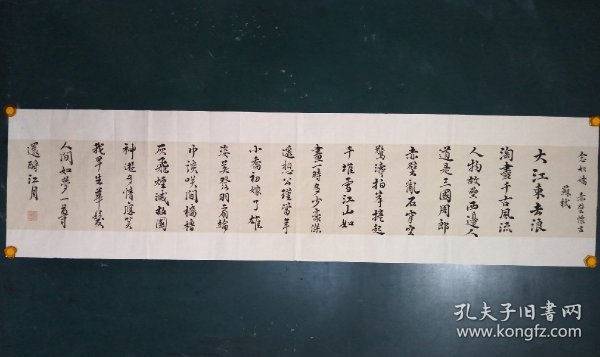 念奴嬌 赤壁懷古
蘇軾
大江東去浪
淘盡千古風流
人物故壘西邊人
道是三國周郎
赤壁亂石穿空
驚濤拍岸捲起
千堆雪江山如
畫一時多少豪傑
遙想公瑾當年
小喬初嫁了雄
姿英發羽扇綸
巾談笑間檣櫓
灰飛煙滅故國
神遊多情應笑
我早生華髮
人間如夢一尊
還酹江月
孔夫子旧書网
www.kongfz.com